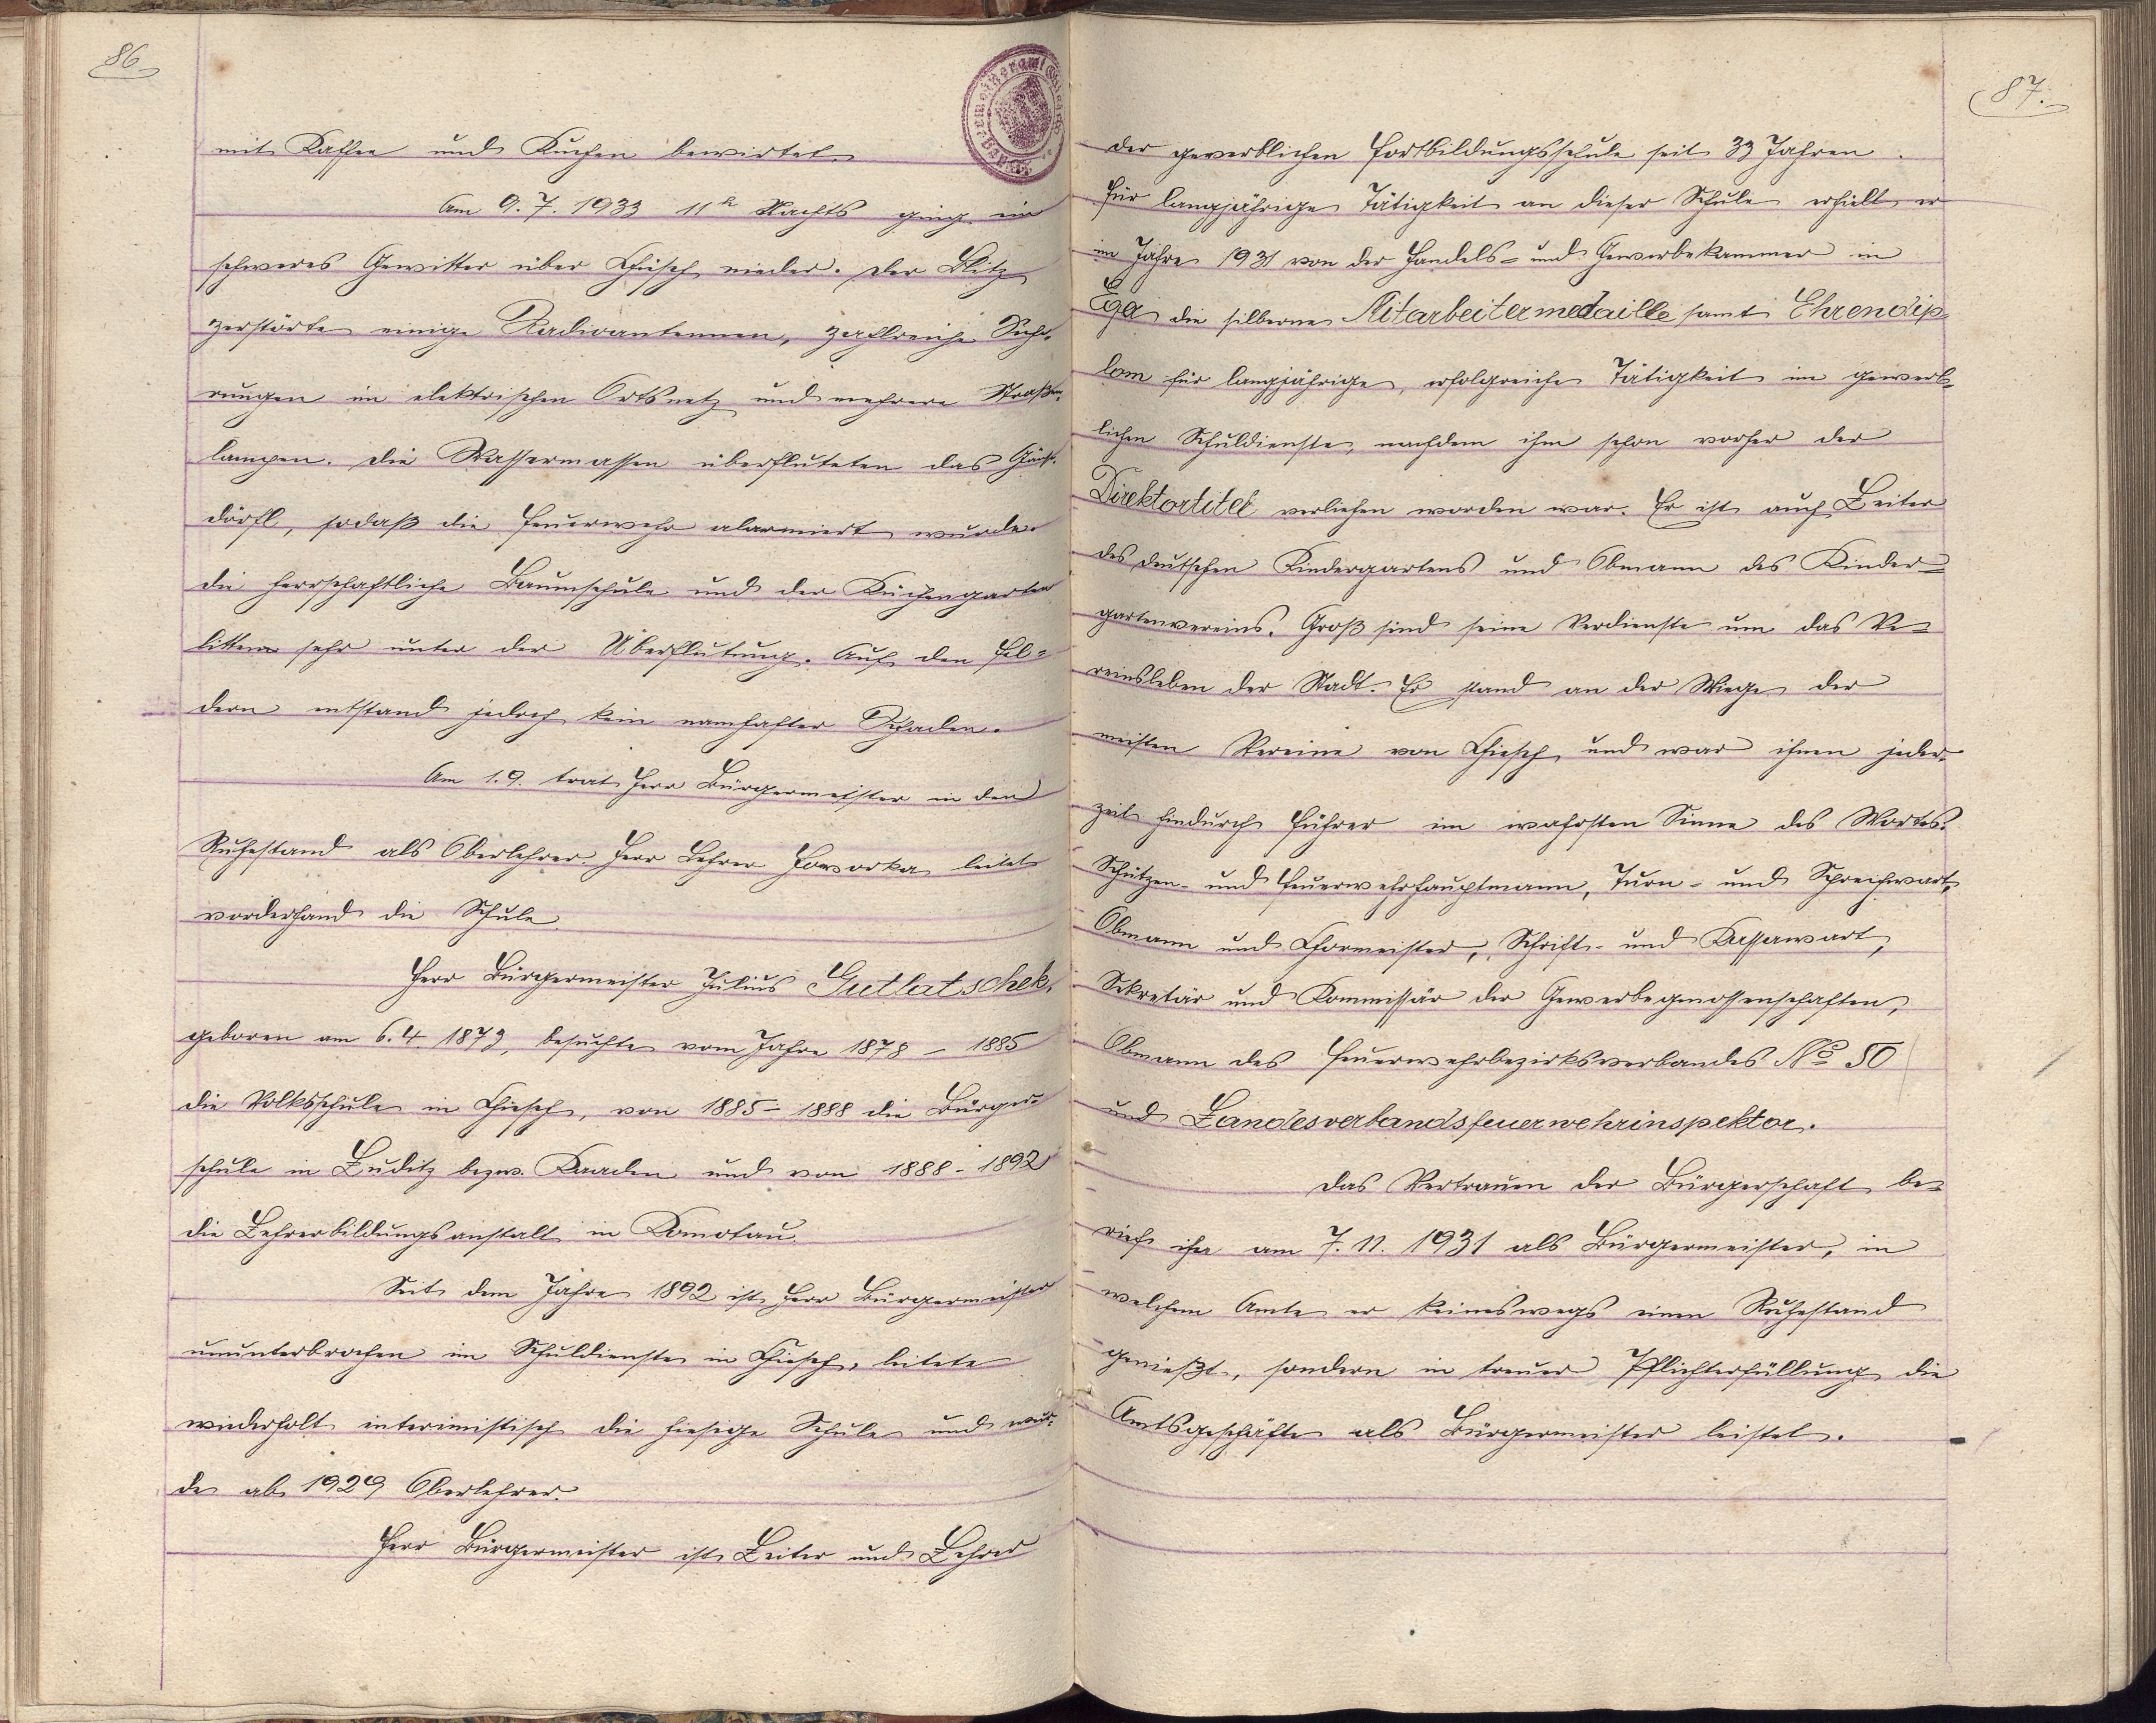 86
mit Kaffee und Kuchen bewirtet.
Am 9. 7. 1933 11h Nachts ging ein
schweres Gewitter über Chiesch nieder. Der Blitz
zerstörte einige Radioantennen, zahlreiche Siche-
rungen im elektrischen Ortsnetz und mehrere Straßen-
lampen. Die Wassermassen überfluteten das Gäns-
dörfl, sodaß die Feuerwehr alarmiert wurde.
Die herrschaftliche Baumschule und der Küchengarten
litten sehr unter der Überflutung. Auf den Fel-
dern entstand jedoch kein namhafter Schaden.
Am 1. 9. trat Herr Bürgermeister in den
Ruhestand als Oberlehrer. Herr Lehrer Howorka leitet
vorderhand die Schule.
Herr Bürgermeister Julius Gutlatschek,
geboren am 6. 4. 1873, besuchte vom Jahre 1878 - 1885
die Volksschule in Chiesch, von 1885 - 1888 die Bürger-
schule in Luditz bezw. Kaaden und von 1888 - 1892
die Lehrerbildungsanstalt in Komotau.
Seit dem Jahre 1892 ist Herr Bürgermeister
ununterbrochen im Schuldienste in Chiesch, leitete
wiederholt interimistisch die hiesige Schule und wur-
de ab 1929 Oberlehrer.
Herr Bürgermeister ist Leiter und Lehrer
87.
der gewerblichen Fortbildungsschule seit 33 Jahren.
Für langjährige Tätigkeit an dieser Schule erhielt er
im Jahre 1931 von der Handels- und Gewerbekammer in
Eger die silberne Mitarbeitermedaille samt Ehrendip-
lom für langjährige, erfolgreiche Tätigkeit im gewerb-
lichen Schuldienste, nachdem ihm schon vorher der
Direktortitel verliehen worden war. Er ist auch Leiter
des deutschen Kindergartens und Obmann des Kinder-
gartenvereins. Groß sind seine Verdienste um das Ve-
reinsleben der Stadt. Er stand an der Wiege der
meisten Vereine von Chiesch und war ihnen jeder-
zeit hindurch Führer im wahrsten Sinne des Wortes.
Schützen- und Feuerwehrhauptmann, Turn- und Sprechwart,
Obmann und Chormeister, Schrift- und Kassawart,
Sekretär und Kommissär der Gewerbegenossenschaften,
Obmann des Feuerwehrbezirksverbandes No 50
und Landesverbandsfeuerwehrinspektor.
Das Vertrauen der Bürgerschaft be-
rief ihn am 7. 11. 1931 als Bürgermeister, in
welchem Amte er keineswegs einen Ruhestand
genießt, sondern in treuer Pflichterfüllung die
Amtsgeschäfte als Bürgermeister leistet.